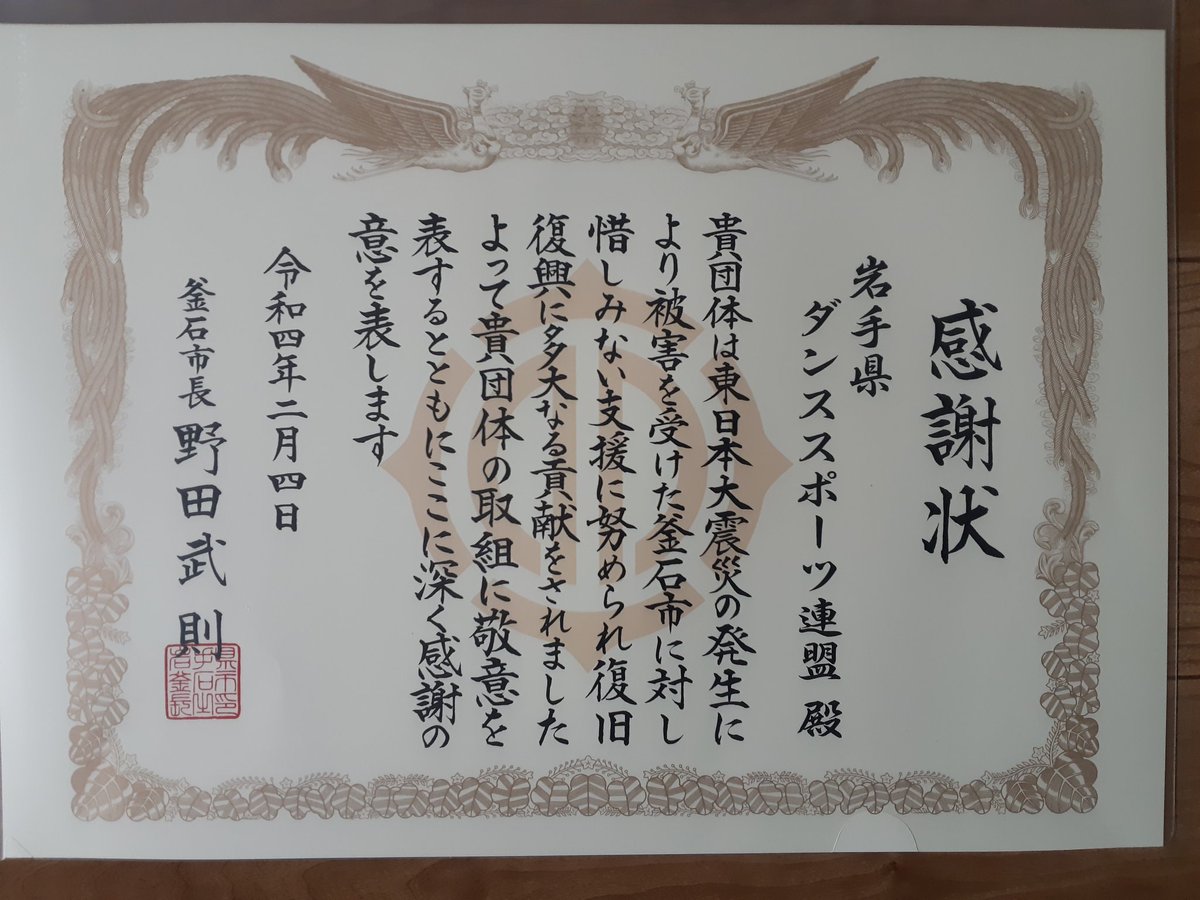 感謝状
岩手県
ダンススポーツ連盟 殿
貴団体は東日本大震災の発生に
より被害を受けた釜石市に対し
惜しみない支援に努められ復旧
復興に多大なる貢献をされました
よって貴団体の取組に敬意を
表するとともにここに深く感謝の
意を表します
令和四年二月四日
釜石市長 野田武則